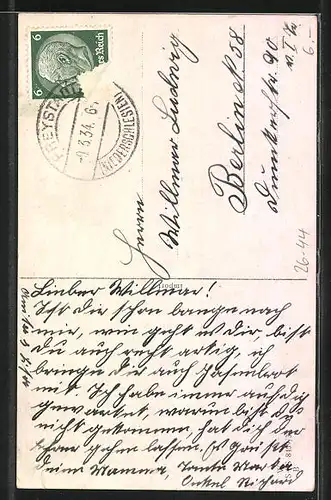 6
Deutsches Reich
FREYSTADT
-9.3.34. 6-
(NIEDERSCHLESIEN)
6.-
Herrn
Willmar Ludwig
Berlin N 58
Dunckerstr. 90
v. I Tr.
26-44
Import
Lieber Willmar!
Ist Dir schon bange nach
mir, wie geht es Dir, bist
Du auch recht artig, ich
bringe Dir auch Hasenbrot
mit. Ich habe immer auf dich
gewartet, warum bist Du
nicht gekommen, hat dich der
nicht gehen lassen. Es grüßt
dein Mamma, Tante Marta
Onkel Richard